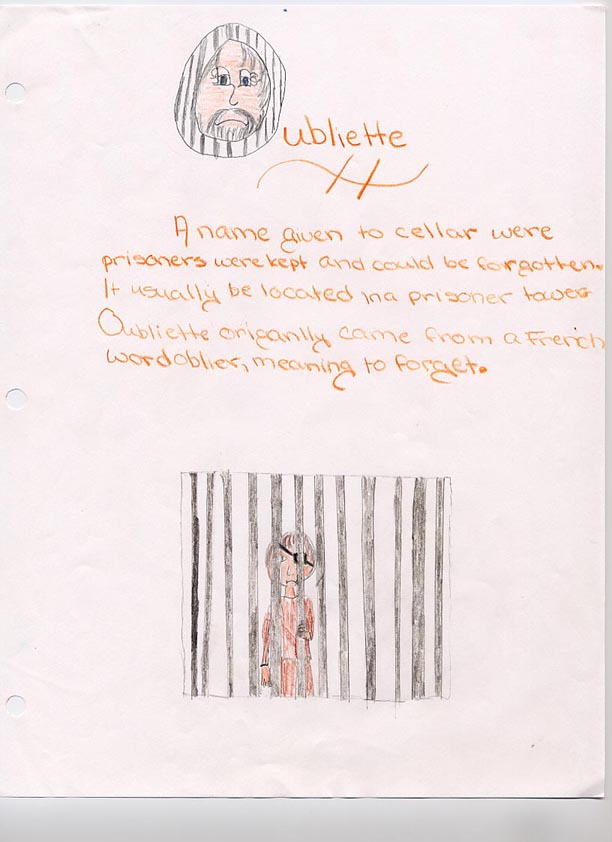 Oubliette
A name given to cellar were
prisoners were kept and could be forgotten.
It usually be located in a prisoner tower
Oubliette origanlly came from a French
word oblier, meaning to forget.